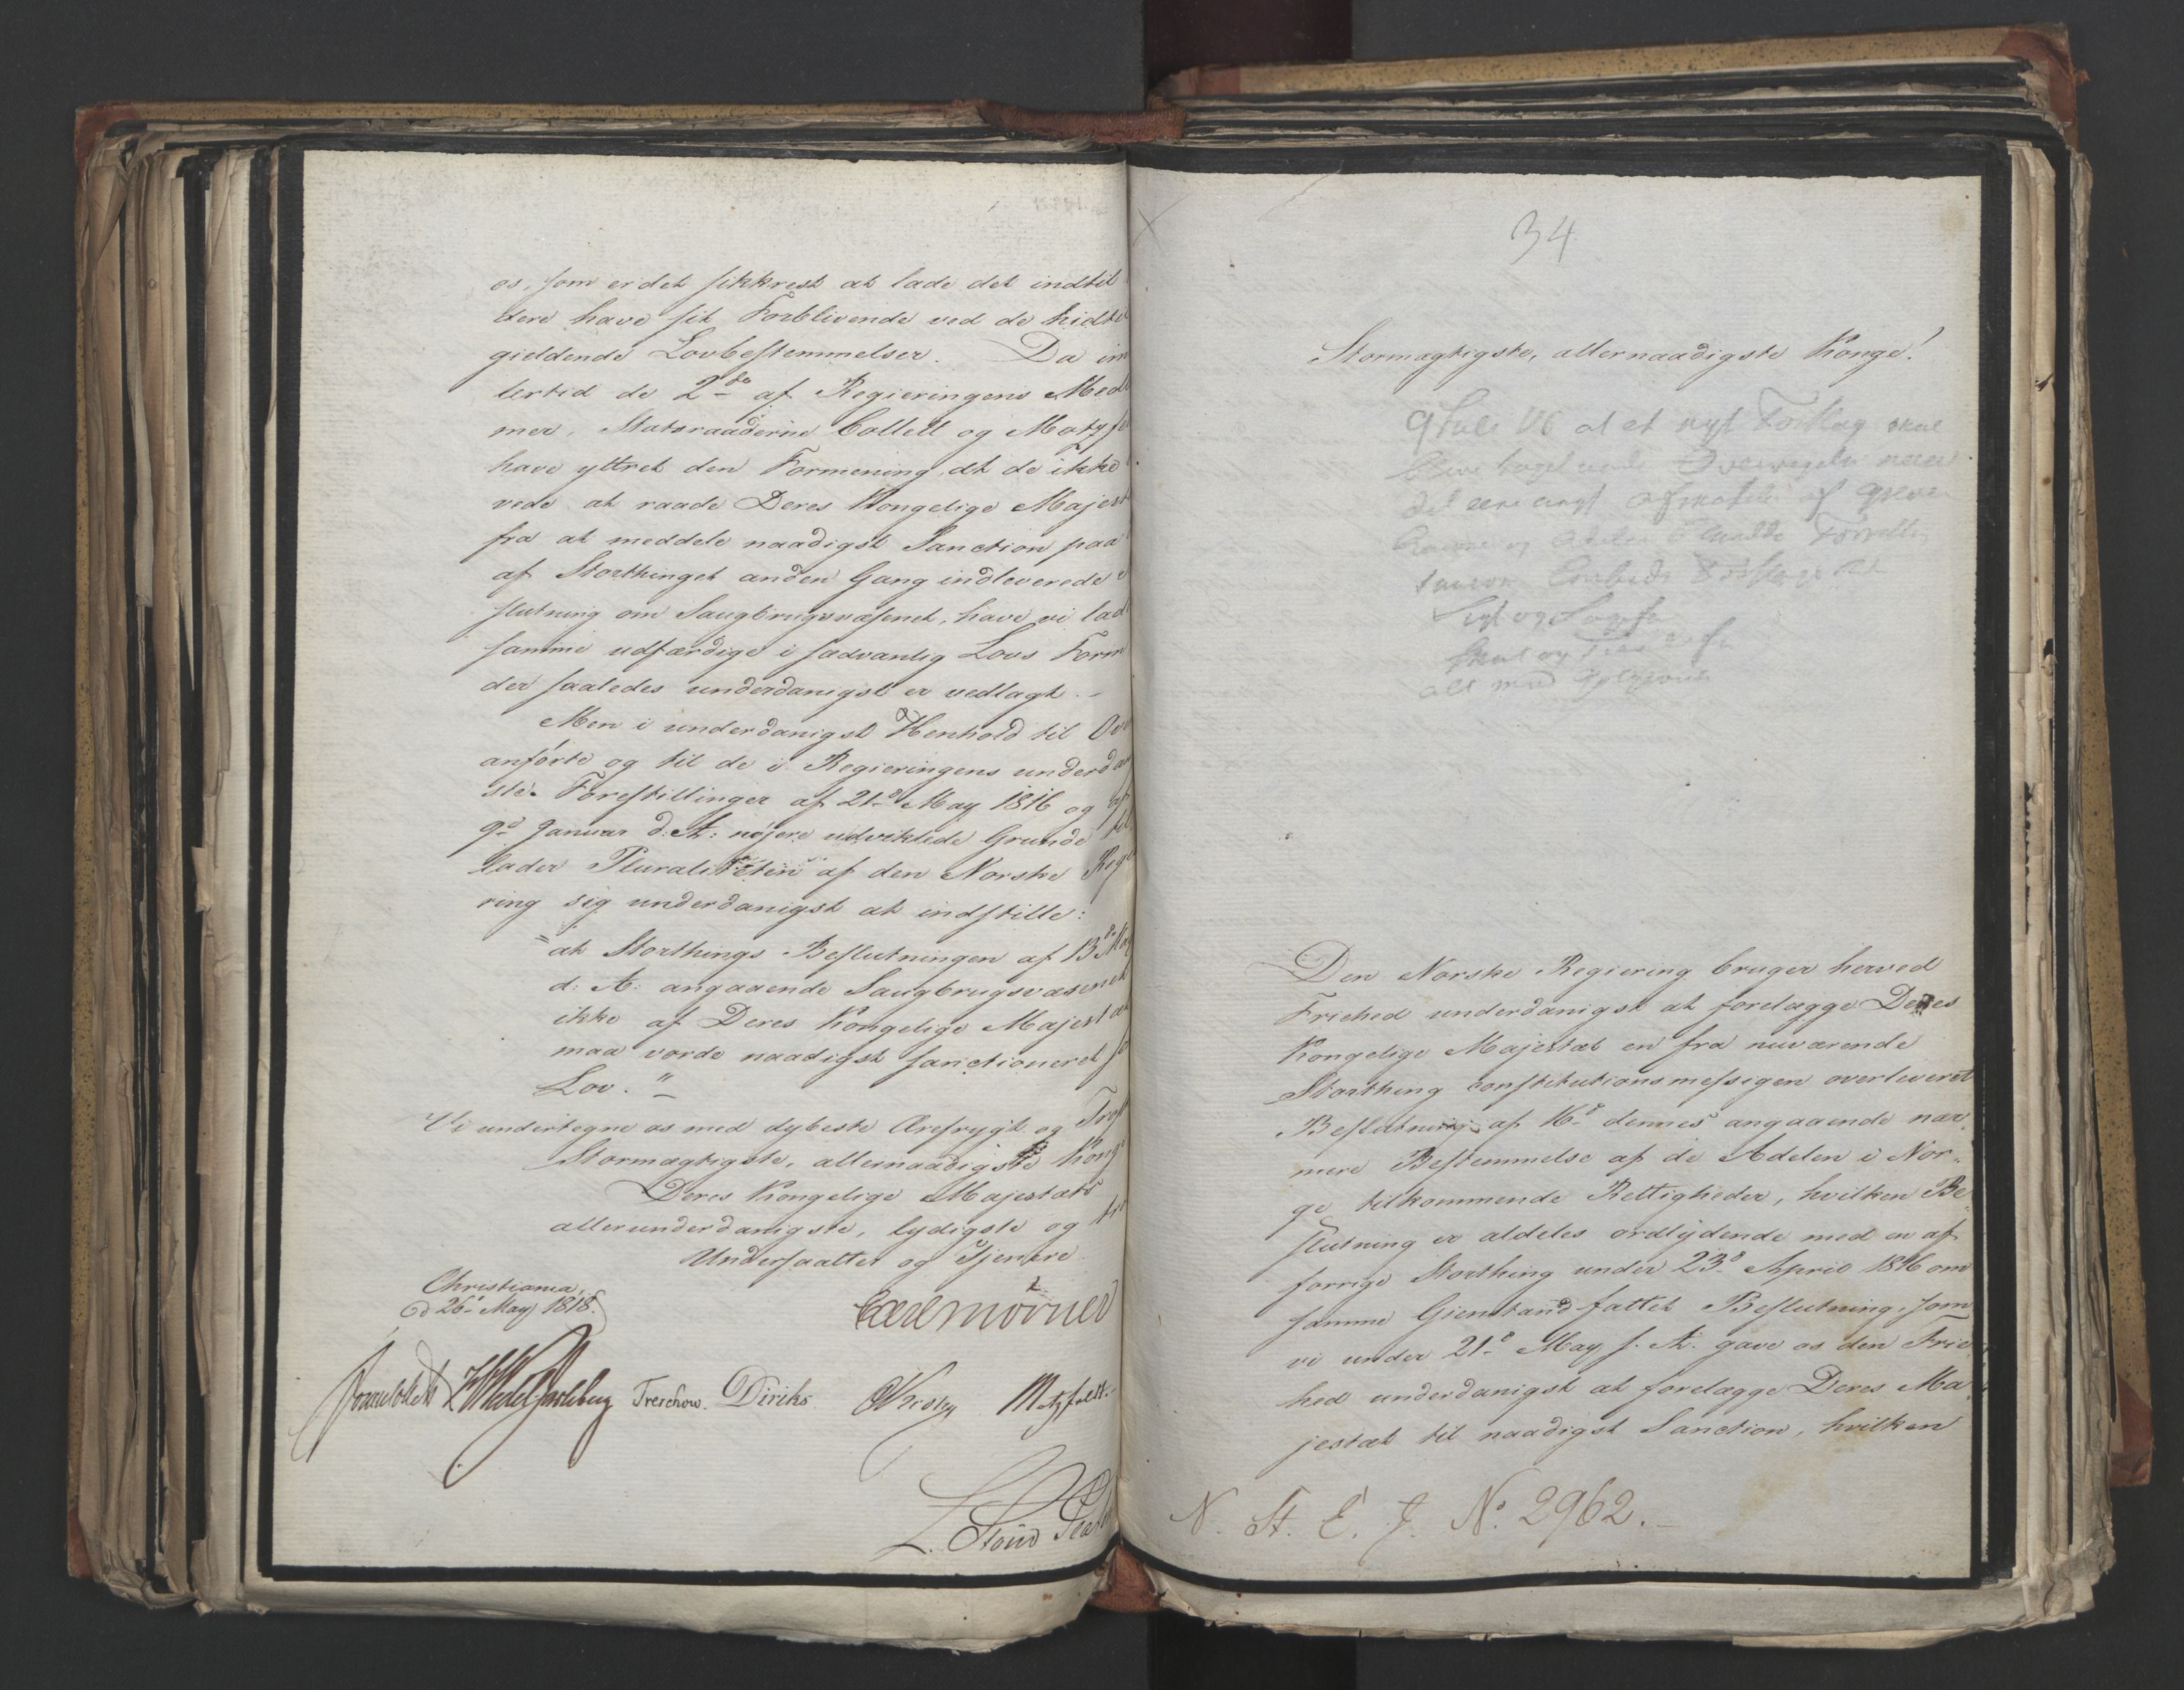 os, som er det sikkrest at lade det indtil
dere have sit Forblivende ved de hidtil
gieldende Lovbestemmelser. Da im
lertid de 2de af Regieringens Med
mer, Statsraaderne Collett og Motzfe
have yttret den Formening, at de ikke
vede at raade Deres Kongelige Majest
fra at meddele naadigst Sanction paa
af Storthinget anden Gang indleverede
slutning om Saugbrugsvæsenet, have vi lad
samme udfærdige i sædvanlig Lovs Form
der saaledes underdanigst er vedlagt. -
Men i underdanigst Henhold til Ov
anførte og til de i Regieringens underdan
ste Forestillinger af 21de May 1816 og af
9de Januar d: A: nøjere udviklede Grunde
lader Pluraliteten af den Norske Rege
ring sig underdanigst at indstille:
"at Storthings Beslutningen af 13de May
d: A: angaaende Saugbrugsvæsenet
ikke af Deres Kongelige Majestæt
maa vorde naadigst sanctioneret so
Lov."
Vi undertegne os med dybeste Ærefrygt og Trosk
Stormægtigste, allernaadigste Konge
Deres Kongelige Majestæts
allerunderdanigste, lydigste og tro
Undersaatter og Tjenere
Christiania,
d 26de May 1818.
Carl Mörner
Sommerhielm HWedel Jarlsberg Treschow. Diriks CKrohg Motzfeldt.
L. Stoud Platou
34
Stormægtigste, allernaadigste Konge!
at et nyt Forslag skal
alt med
Den Norske Regiering bruger herved
Friehed underdanigst at forelægge Deres
Kongelige Majestæt en fra nuværende
Storthing constitutionsmessigen overleveret
Beslutning af 16de dennes angaaende nær,
mere Bestemmelse af de Adelen i Nor,,
ge tilkommende Rettigheder, hvilken Be
slutning er aldeles ordlydende med en af
forrige Storthing under 23de April 1816 om
samme Gienstand fattet Beslutning, som
vi under 21de May s. A. gave os den Frie
hed underdanigst at forelægge Deres Ma
jestæt til naadigst Sanction, hvilken
N. St. E. J. No. 2962.-